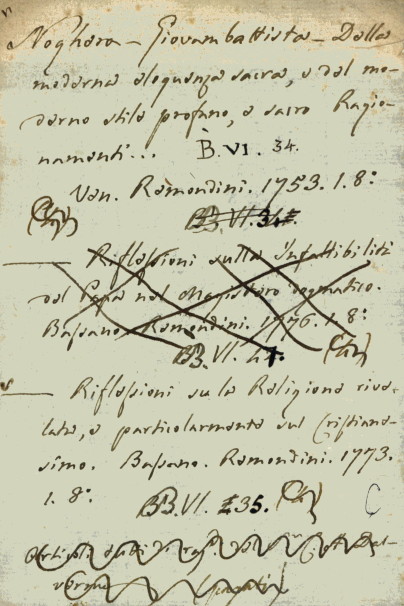 Noghera - Giovambattista - Della
moderna eloquenza sacra, e del mo-
derno stile profano, e sacro Ragio-
namenti... B. VI. 34.
Ven. Remondini. 1753. 1. 8º
BB. VI. 34
Riflessioni sulla Infallibilità
del Papa nel Magistero dogmatico.
Bassano. Remondini. 1776. 1. 8º
BB. VI. 47.
Riflessioni su la Religione rive-
lata, e particolarmente sul Cristiane-
simo. Bassano. Remondini. 1773.
1. 8º BB. VI. 35.